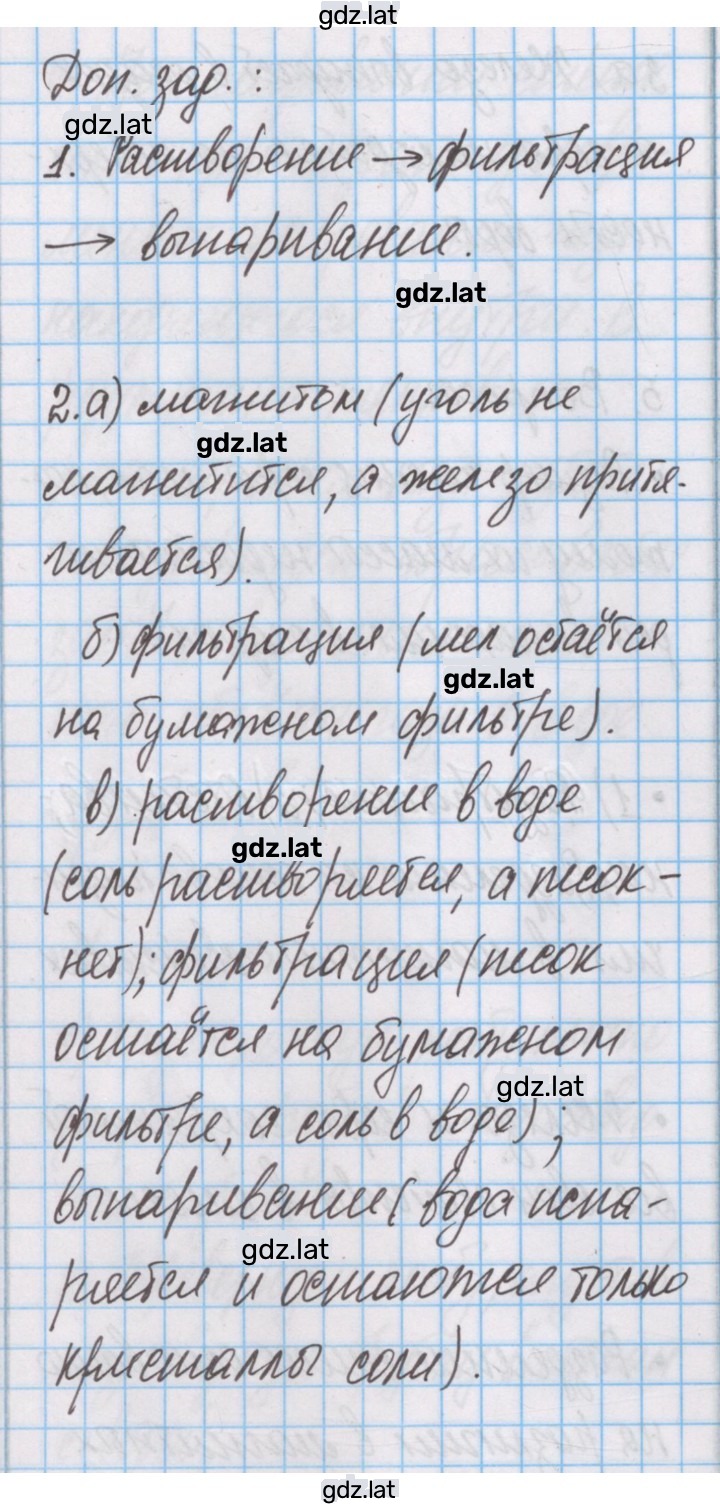 gdz.lat
Доп. зад.:
gdz.lat
1. Растворение → фильтрация
→ выпаривание.
gdz.lat
2. а) магнитом (уголь не
gdz.lat
магнитится, а железо притя-
гивается).
б) фильтрация (мел остаётся
gdz.lat
на бумажном фильтре).
в) растворение в воде
gdz.lat
(соль растворяется, а песок -
нет); фильтрация (песок
остаётся на бумажном
gdz.lat
фильтре, а соль в воде);
выпаривание (вода испа-
gdz.lat
ряется и остаются только
кристаллы соли).
gdz.lat